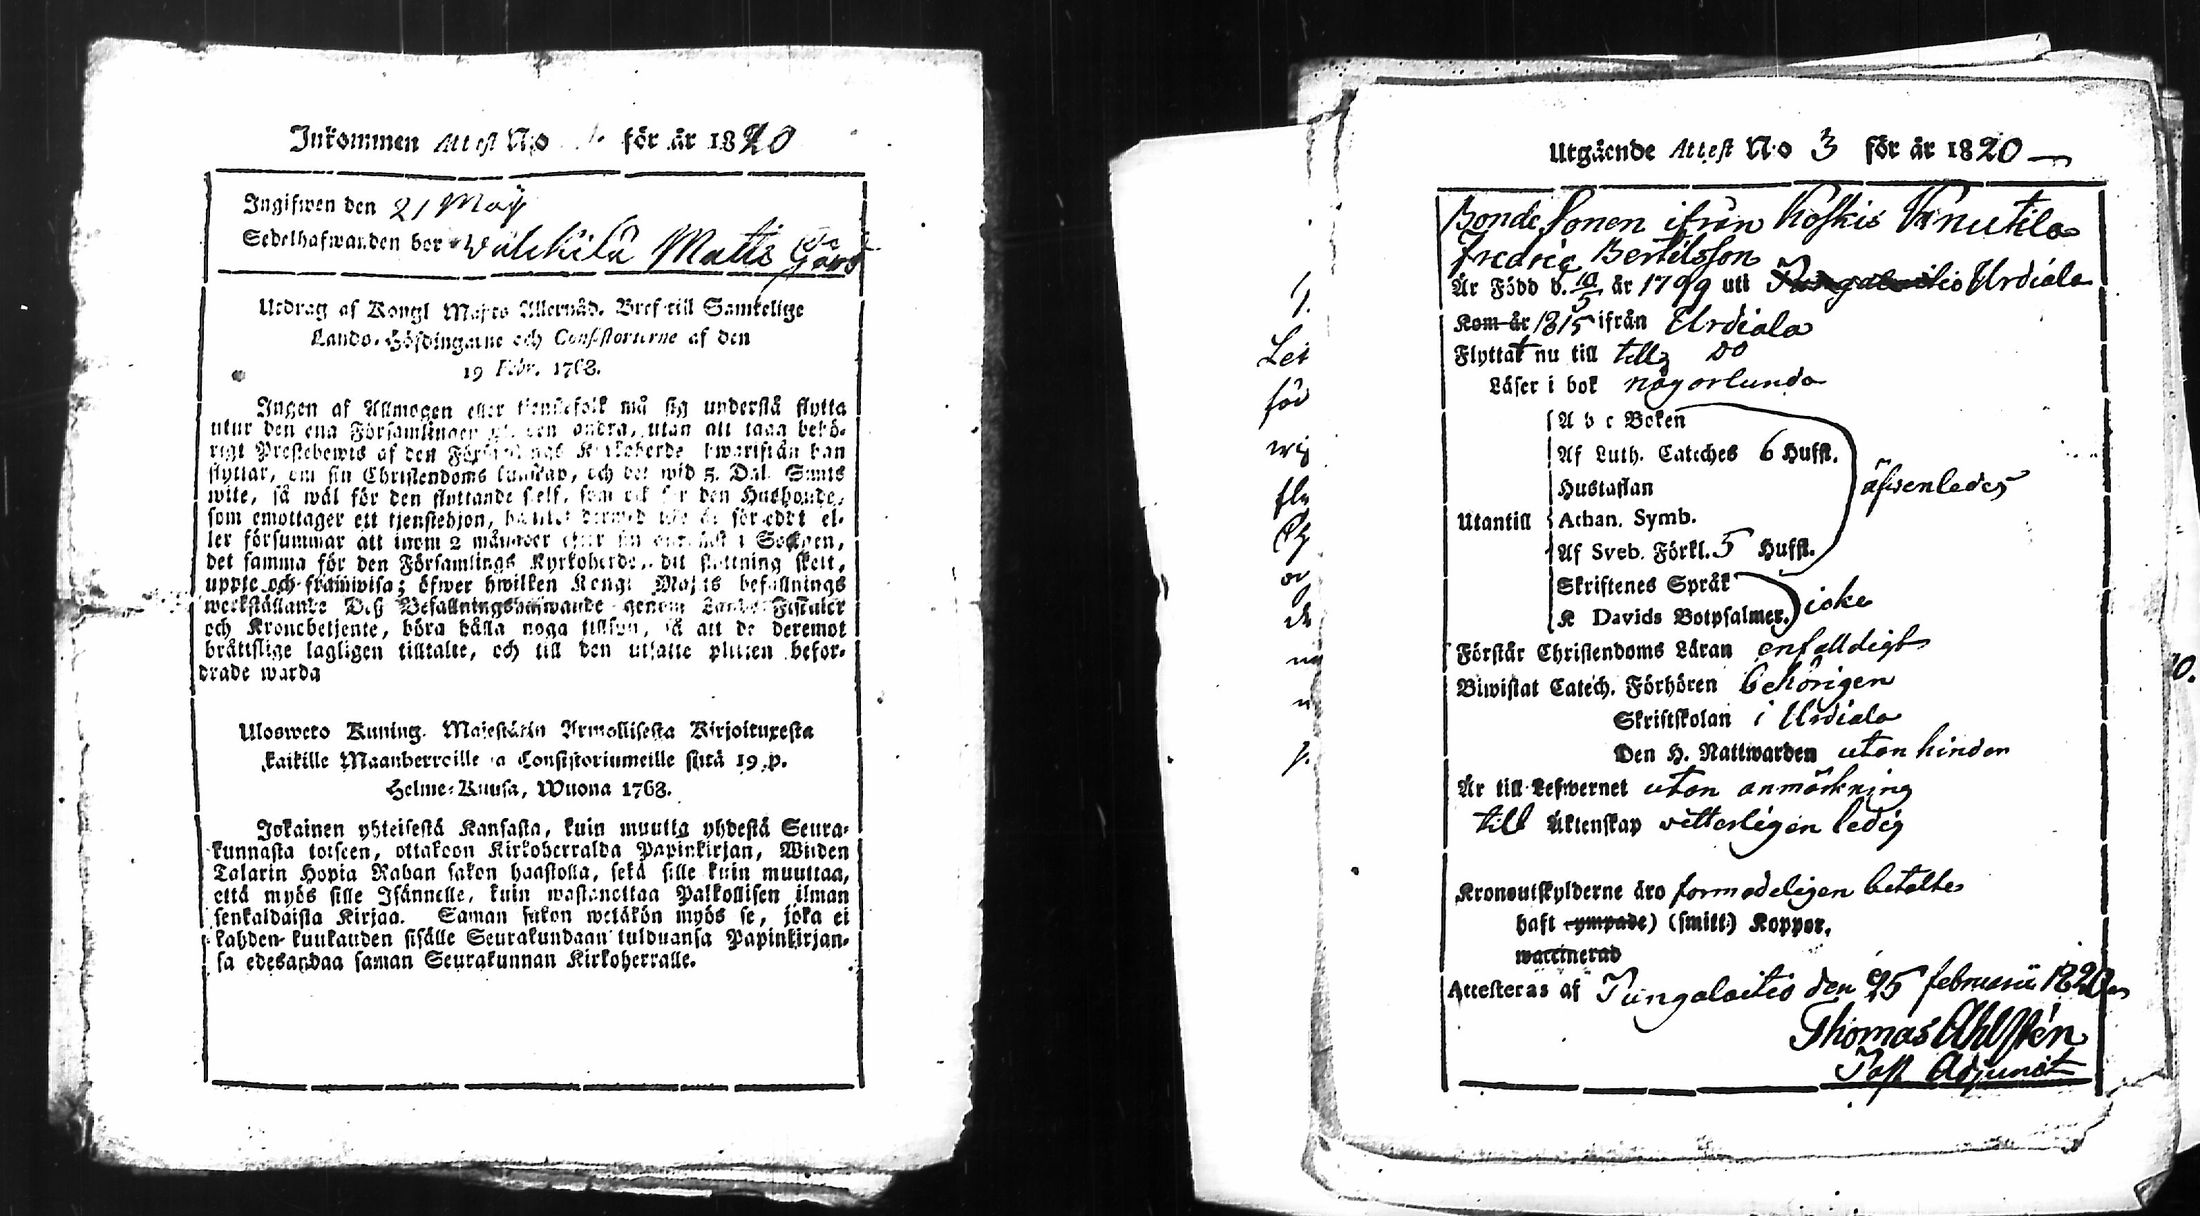 Inkommen Attest N:o för år 1820
Ingifwen den 21 Maÿ
Sedelhafwanden bor Wälckilä Matts Gård
Utdrag af Kongl Maj:ts Allernåd. Bref till Samtelige
Lands-Höfdingarne och Consistorierne af den
19 Febr. 1768.
Ingen af Allmogen eller tjenstefolk må sig understå flytta
utur den ena Församlingen den andra, utan att taga behö-
rigt Prestebewis af den Kyrkoherde hwarifrån han
flyttar, om sin Christendoms kunskap, och det wid 5. Dal. Smts
wite, så wäl för den flyttande sjelf, som ock för den Husbonde,
som emottager ett tjenstehjon, el-
ler försummar att inom 2 månader efter sin i Socknen,
det samma för den Församlings Kyrkoherde, dit flyttning skett,
uppte och framwisa; öfwer hwilken Kongl Maj:ts befallnings
werkställande Deß Befallningshafwande genom Lands-Fiskaler
och Kronobetjente, böra hålla noga tillsyn, så att de deremot
bråttslige lagligen tilltalte, och till den utsatte plikten befor-
drade warda
Ulosweto Kuning. Majestätin Armollisesta Kirjoituxesta
kaikille Maanherroille ja Consistoriumeille siitä 19 p.
Helme-Kuusa, Wuona 1768.
Jokainen yhteisestä Kansasta, kuin muutta yhdestä Seura-
kunnasta toiseen, ottakoon Kirkoherralda Papinkirjan, Wiiden
Talarin Hopia Rahan sakon haastolla, sekä sille kuin muuttaa,
että myös sille Isännelle, kuin wastanottaa Palkollisen ilman
senkaldaista Kirjaa. Saman sakon wetäkön myös se, joka ei
kahden kuukauden sisälle Seurakundaan tulduansa Papinkirjan-
sa edesandaa saman Seurakunnan Kirkoherralle.
Utgående Attest N:o 3 för år 1820
Bonde sonen ifrån Koskis Knutila
Fredric Bertilsson
Är Född d. 10/5 år 1799 uti Urdiala
Kom år 1815 ifrån Urdiala
Flyttat nu till tillb Do
Läser i bok någorlunda
Utantill
A b c Boken
Af Luth. Cateches 6 Hufst.
Hustaflan
Athan. Symb.
Af Sveb. Förkl. 5 Hufst.
äfwenledes
Skriftenes Språk
K Davids Botpsalmer.
icke
Förstår Christendoms Läran enfalldigt
Biwistat Catech. Förhören behörigen
Skriftskolan i Urdiala
Den H. Nattwarden utan hinder
Är till Lefwernet utan anmärkning
till Äktenskap vetterligen ledig
Kronoutskylderne äro formodeligen betalte
haft ympade) (smitt:) Koppor.
waccinerad
Attesteras af Tungalaitio den 25 februarii 1820
Thomas Ahlstén
Past Adjunct